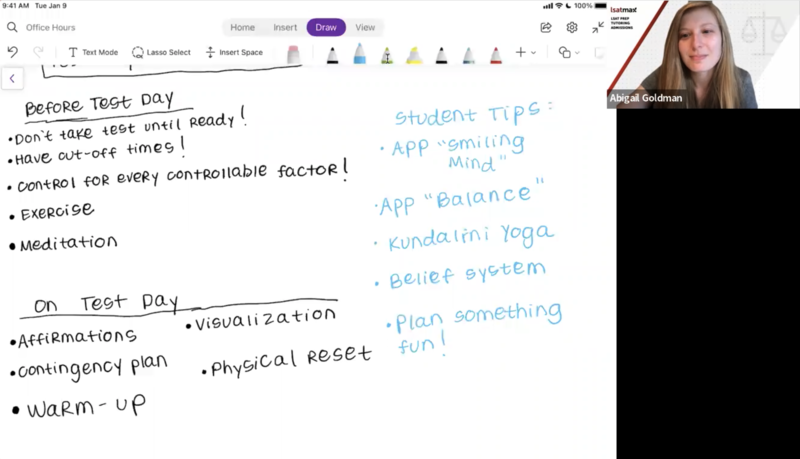 9:41 AM Tue Jan 9
100%
Office Hours
Home Insert Draw View
Text Mode Lasso Select Insert Space
Before Test Day
• Don't take test until ready!
• Have cut-off times!
• Control for every controllable factor!
• Exercise
• Meditation
On Test Day
• Affirmations
• Contingency plan
• Warm-up
• Visualization
• Physical Reset
Student Tips:
• App "Smiling
Mind"
• App "Balance"
• Kundalini Yoga
• Belief system
• Plan something
fun!
lsatmax
LSAT PREP
TUTORING
ADMISSIONS
Abigail Goldman